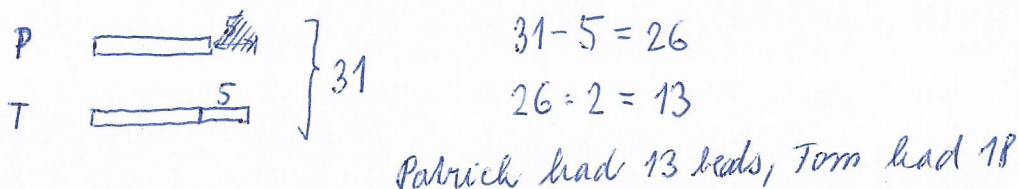 P
5
T
31
31-5=26
26:2=13
Patrick had 13 beds, Tom had 18